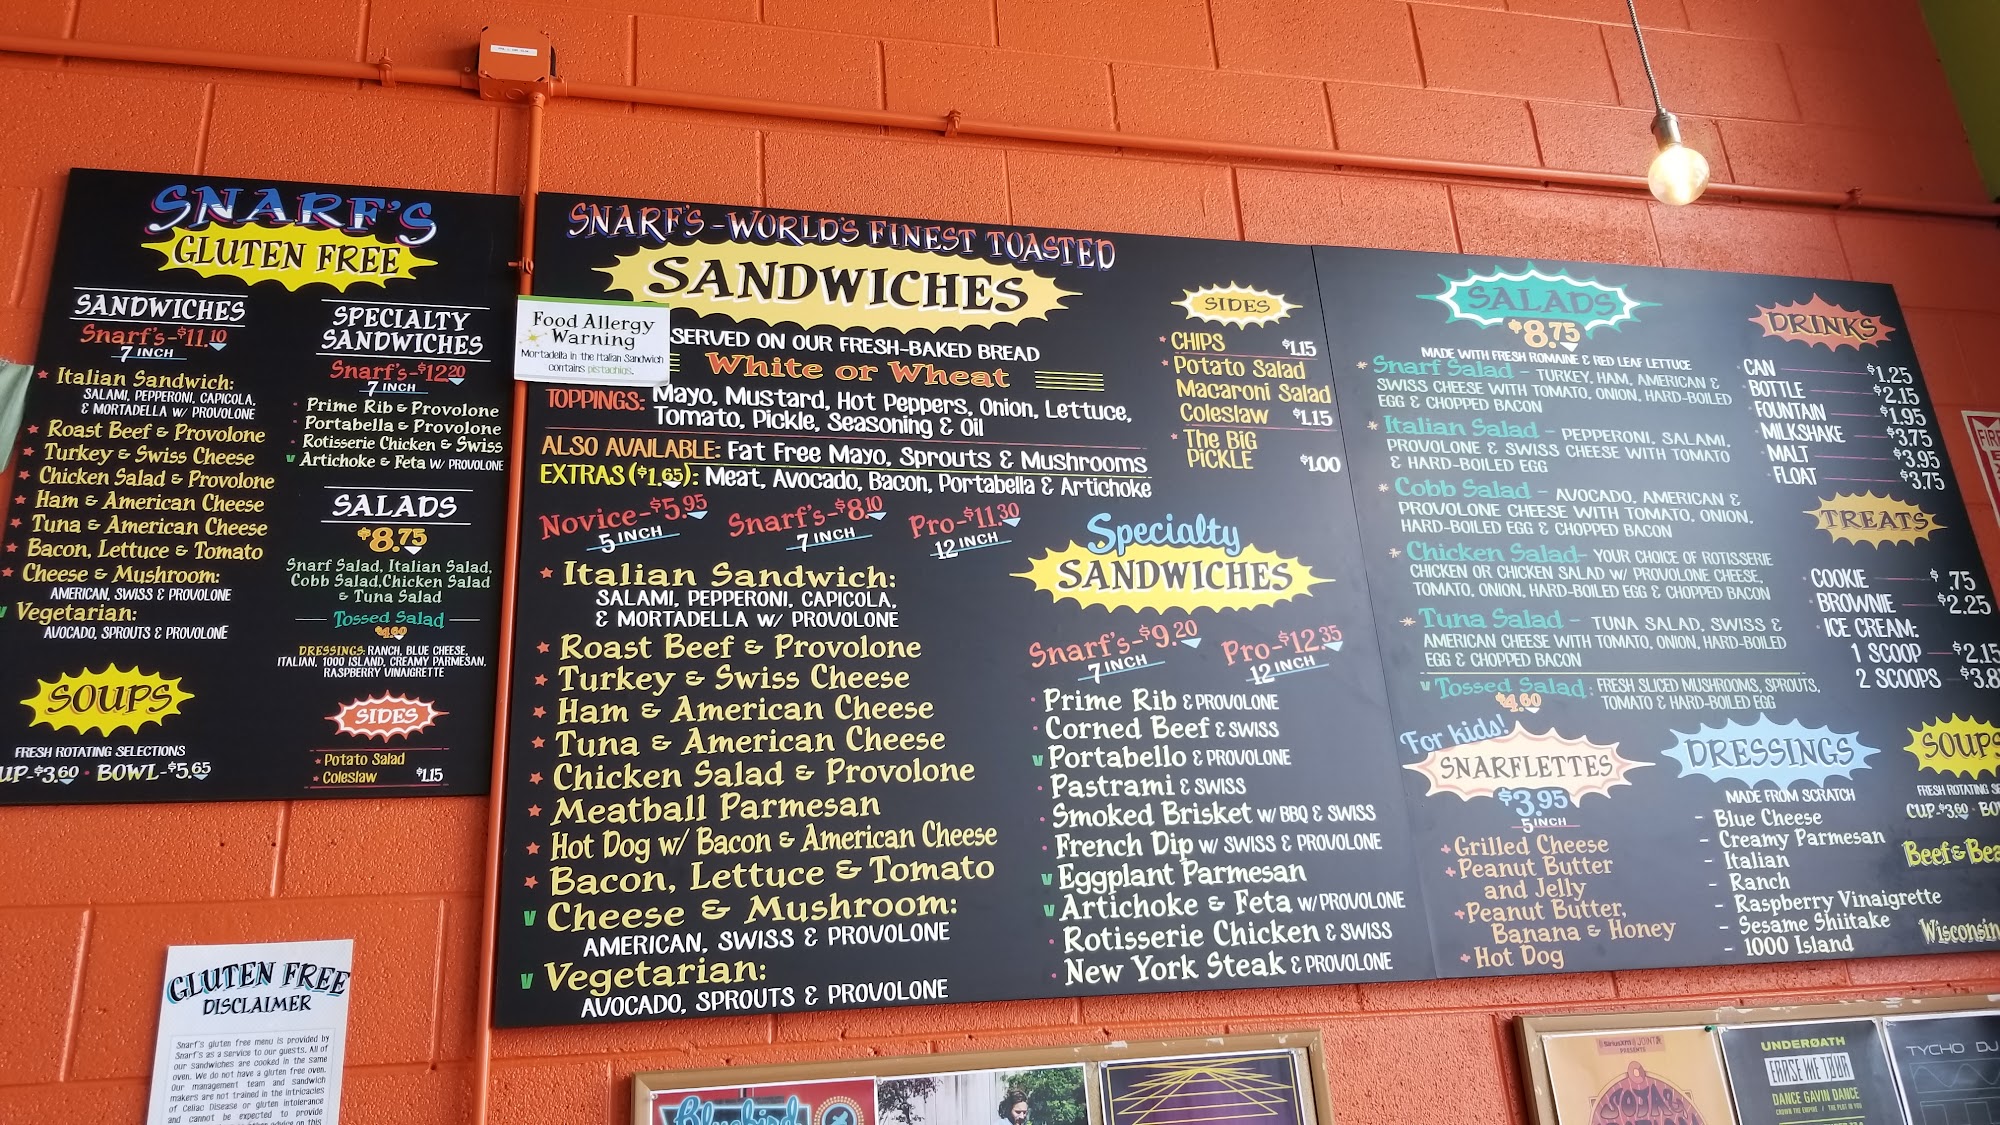 SNARF'S
GLUTEN FREE
SANDWICHES
Snarf's-$11.10
7 INCH
Italian Sandwich:
SALAMI, PEPPERONI, CAPICOLA,
& MORTADELLA W/ PROVOLONE
Roast Beef & Provolone
Turkey & Swiss Cheese
Chicken Salad & Provolone
Ham & American Cheese
Tuna & American Cheese
Bacon, Lettuce & Tomato
Cheese & Mushroom:
AMERICAN, SWISS & PROVOLONE
V Vegetarian:
AVOCADO, SPROUTS & PROVOLONE
SOUPS
FRESH ROTATING SELECTIONS
CUP-$3.60 · BOWL-$5.65
SPECIALTY
SANDWICHES
Snarf's-$12.20
7 INCH
Prime Rib & Provolone
Portabella & Provolone
Rotisserie Chicken & Swiss
V Artichoke & Feta W/ PROVOLONE
SALADS
$8.75
Snarf Salad, Italian Salad,
Cobb Salad, Chicken Salad
& Tuna Salad
Tossed Salad
$4.60
DRESSINGS: RANCH, BLUE CHEESE,
ITALIAN, 1000 ISLAND, CREAMY PARMESAN,
RASPBERRY VINAIGRETTE
SIDES
Potato Salad
Coleslaw $1.15
GLUTEN FREE
DISCLAIMER
Snarf's gluten free menu is provided by
Snarf's as a service to our guests. All of
our sandwiches are cooked in the same
oven. We do not have a gluten free oven.
Our management team and sandwich
makers are not trained in the intricacies
of Celiac Disease or gluten intolerance
and cannot be expected to provide
advice on this
SNARF'S-WORLD'S FINEST TOASTED
SANDWICHES
Food Allergy
Warning
Mortadella in the Italian Sandwich
contains pistachios.
SERVED ON OUR FRESH-BAKED BREAD
White or Wheat
TOPPINGS: Mayo, Mustard, Hot Peppers, Onion, Lettuce,
Tomato, Pickle, Seasoning & Oil
ALSO AVAILABLE: Fat Free Mayo, Sprouts & Mushrooms
EXTRAS ($1.65): Meat, Avocado, Bacon, Portabella & Artichoke
Novice-$5.95
5 INCH
Snarf's-$8.10
7 INCH
Pro-$11.30
12 INCH
Italian Sandwich:
SALAMI, PEPPERONI, CAPICOLA,
& MORTADELLA W/ PROVOLONE
Roast Beef & Provolone
Turkey & Swiss Cheese
Ham & American Cheese
Tuna & American Cheese
Chicken Salad & Provolone
Meatball Parmesan
Hot Dog w/ Bacon & American Cheese
Bacon, Lettuce & Tomato
V Cheese & Mushroom:
AMERICAN, SWISS & PROVOLONE
V Vegetarian:
AVOCADO, SPROUTS & PROVOLONE
SIDES
CHIPS $1.15
Potato Salad
Macaroni Salad
Coleslaw $1.15
The BIG
PICKLE $1.00
Specialty
SANDWICHES
Snarf's-$9.20
7 INCH
Pro-$12.35
12 INCH
Prime Rib & PROVOLONE
Corned Beef & SWISS
V Portabello & PROVOLONE
Pastrami & SWISS
Smoked Brisket W/ BBQ & SWISS
French Dip W/ SWISS & PROVOLONE
V Eggplant Parmesan
V Artichoke & Feta W/PROVOLONE
Rotisserie Chicken & SWISS
New York Steak & PROVOLONE
SALADS
$8.75
MADE WITH FRESH ROMAINE & RED LEAF LETTUCE
Snarf Salad - TURKEY, HAM, AMERICAN &
SWISS CHEESE WITH TOMATO, ONION, HARD-BOILED
EGG & CHOPPED BACON
Italian Salad - PEPPERONI, SALAMI,
PROVOLONE & SWISS CHEESE WITH TOMATO
& HARD-BOILED EGG
Cobb Salad - AVOCADO, AMERICAN &
PROVOLONE CHEESE WITH TOMATO, ONION,
HARD-BOILED EGG & CHOPPED BACON
Chicken Salad- YOUR CHOICE OF ROTISSERIE
CHICKEN OR CHICKEN SALAD W/ PROVOLONE CHEESE,
TOMATO, ONION, HARD-BOILED EGG & CHOPPED BACON
Tuna Salad - TUNA SALAD, SWISS &
AMERICAN CHEESE WITH TOMATO, ONION, HARD-BOILED
EGG & CHOPPED BACON
V Tossed Salad: FRESH SLICED MUSHROOMS, SPROUTS,
$4.60 TOMATO & HARD-BOILED EGG
For kids!
SNARFLETTES
$3.95
5 INCH
Grilled Cheese
Peanut Butter
and Jelly
Peanut Butter,
Banana & Honey
Hot Dog
DRESSINGS
MADE FROM SCRATCH
- Blue Cheese
- Creamy Parmesan
- Italian
- Ranch
- Raspberry Vinaigrette
- Sesame Shiitake
- 1000 Island
DRINKS
CAN $1.25
BOTTLE $2.15
FOUNTAIN $1.95
MILKSHAKE $3.75
MALT $3.95
FLOAT $3.75
TREATS
COOKIE $ .75
BROWNIE $2.25
ICE CREAM:
1 SCOOP $2.15
2 SCOOPS $3.8
SOUPS
FRESH ROTATING SE
CUP-$3.60 · BO
Beef & Bea
Wisconsin
FIRE
Bluebird
SiriusXM JOINT
PRESENTS
UNDERØATH
ERASE ME TOUR
DANCE GAVIN DANCE
CROWN THE EMPIRE / THE PLOT IN YOU
TYCHO DJ